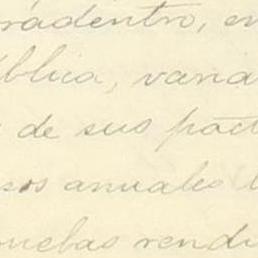 radentro, en
blica, varia
de sus pact
sos anuales
uebas rendi